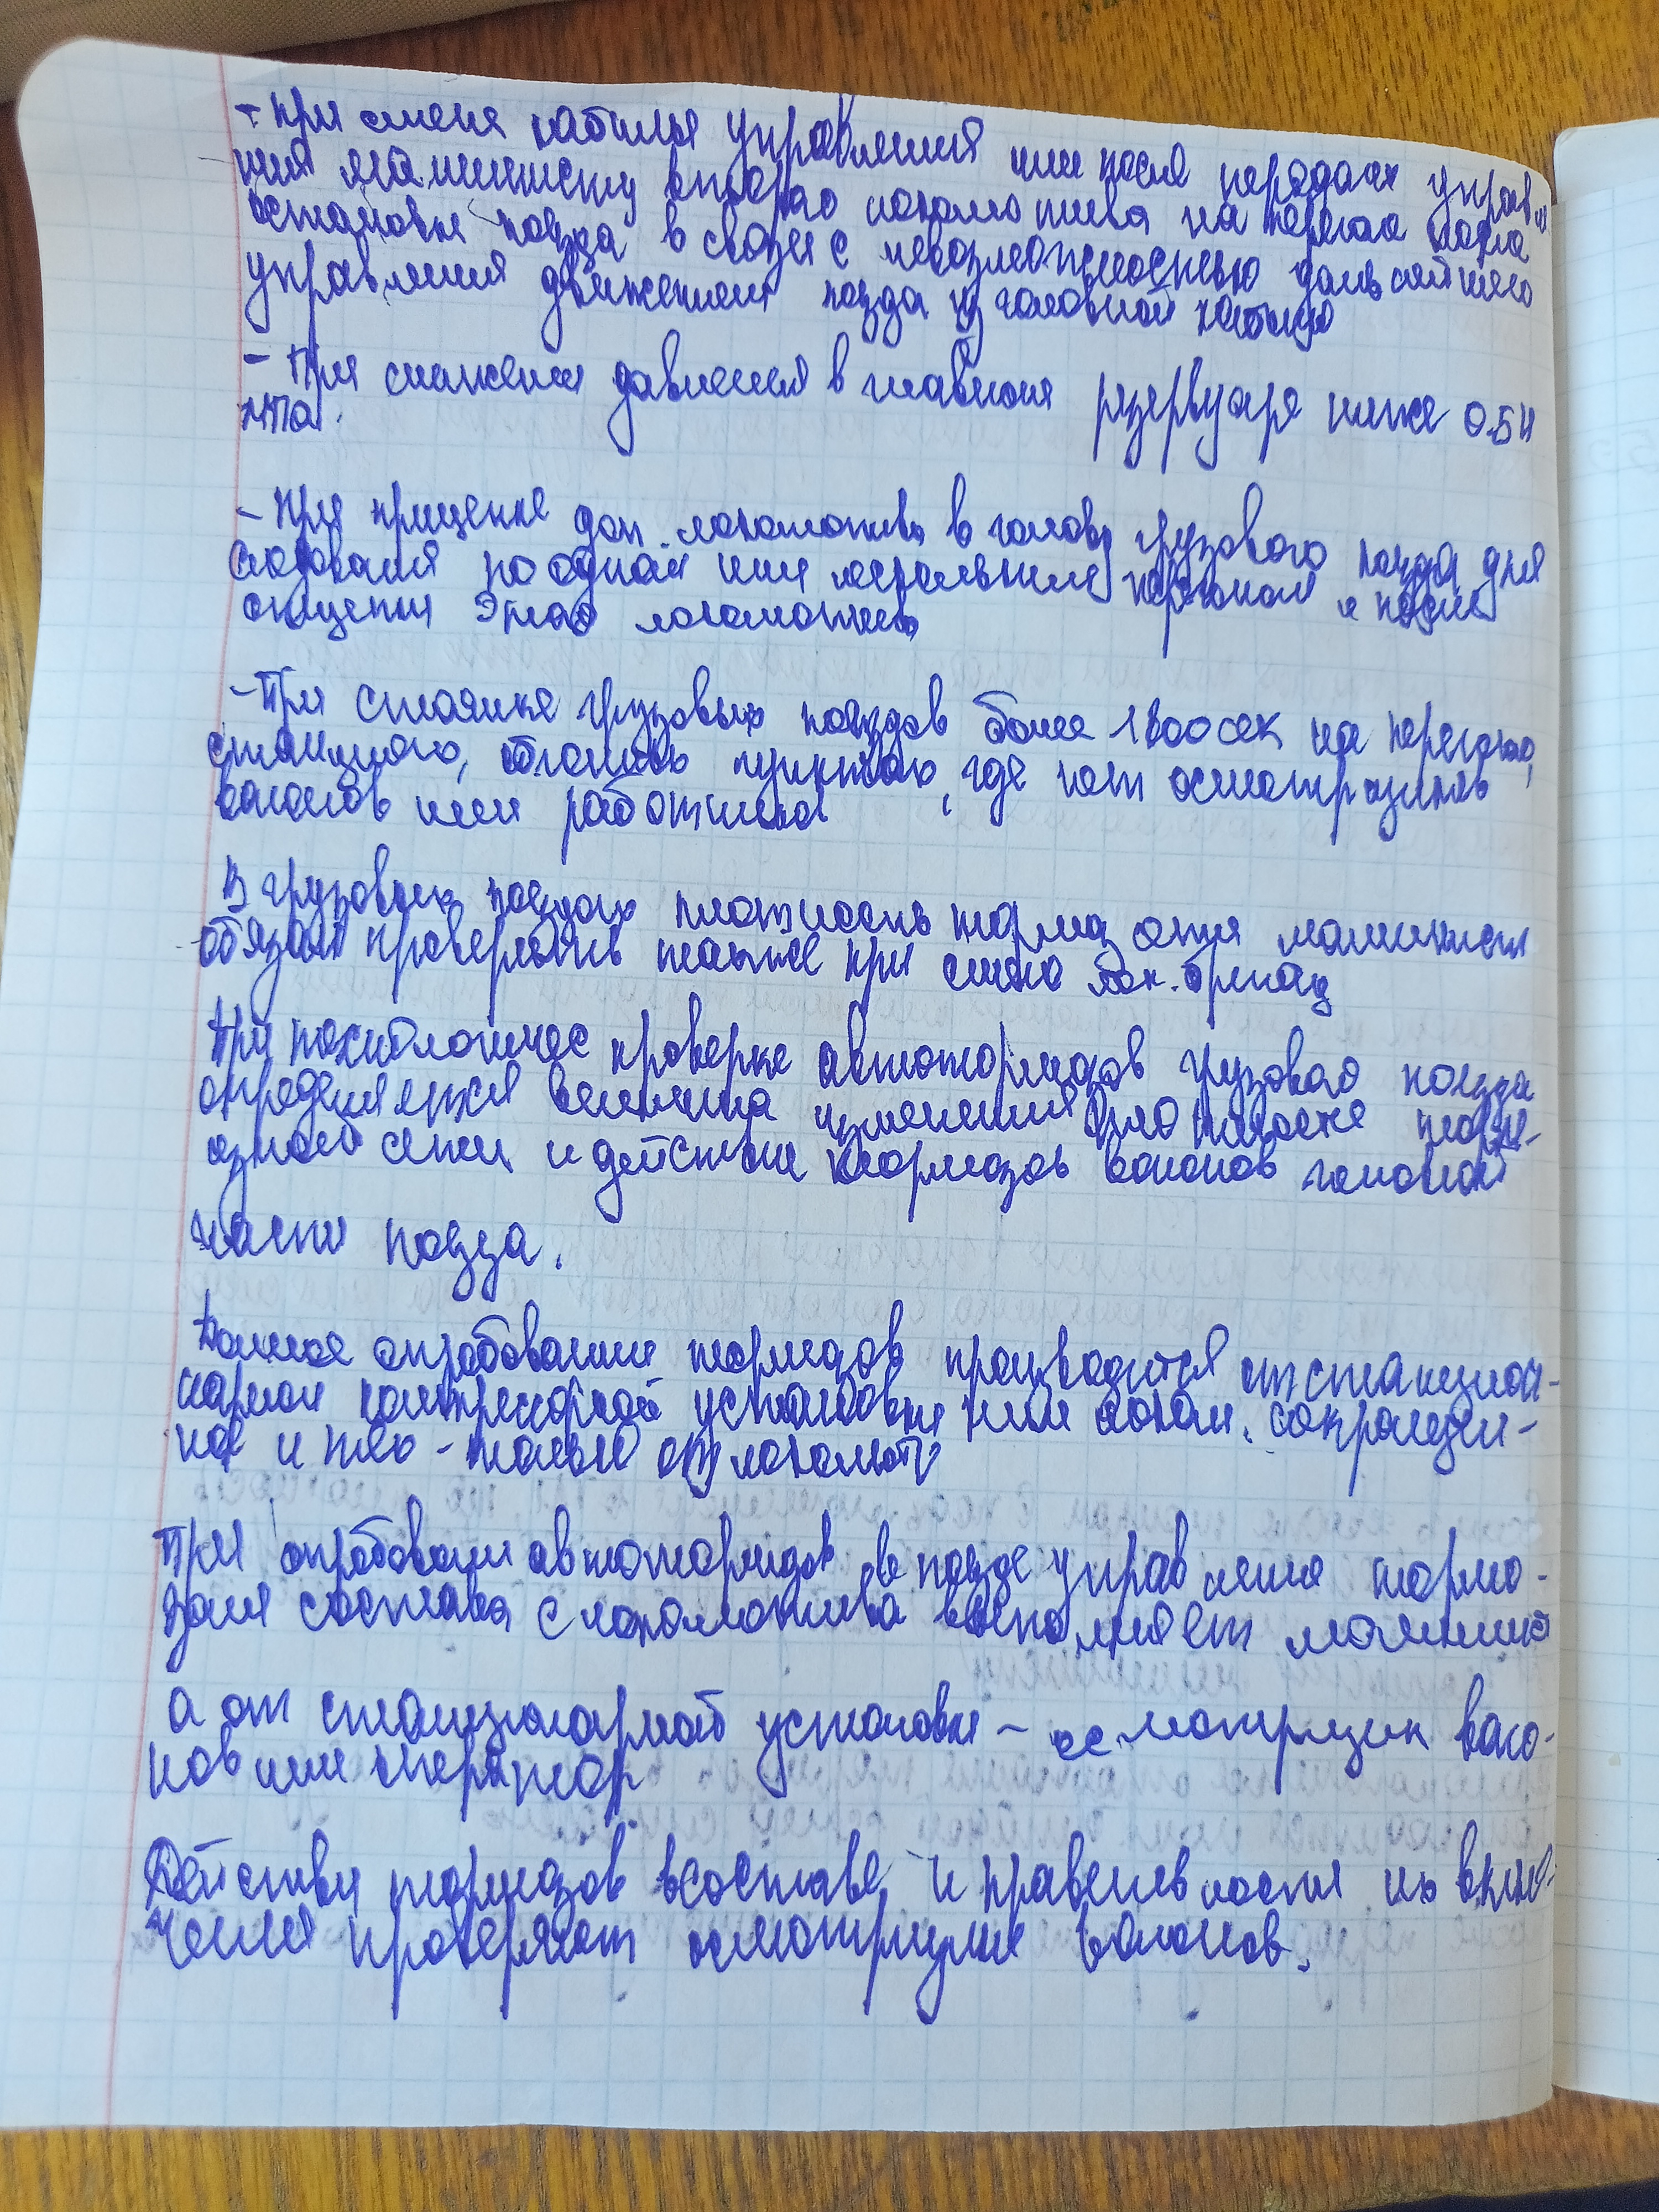 - при смене кабины управления или после передачи управле
ния машинисту второго локомотива на перегоне после
остановки поезда в связи с невозможностью дальнейшего
управления движением поезда из головной кабины
- При снижении давления в главном резервуаре ниже 0.54
МПа.
- При прицепке доп. локомотива в голову грузового поезда для
следования по одному или нескольким перегонам и после
отцепки этого локомотива
- При стоянке грузовых поездов более 1800 сек на перегоне,
станциях, пунктах, где нет осмотрщиков
вагонов или работника
В грузовых поездах плотность тормоз сети машинист
обязан проверять также при смене лок. бригад
При технологичес проверке автотормозов грузового поезда
определяется величина изменения плотности тормо-
зной сети и действие тормозов вагонов головной
части поезда.
Полное опробование тормозов производится от стационо-
нарной компрессорной установки или локом, сокращен-
ное и тех - только от локомот
При опробовании автотормозов в поезде управление тормо-
зами состава с локомотива выполняет машинис
а от стационарной установки - осмотрщик ваго-
нов или оператор
Действия тормозов в составе и правильность их вклю-
чения проверяют осмотрщики вагонов.